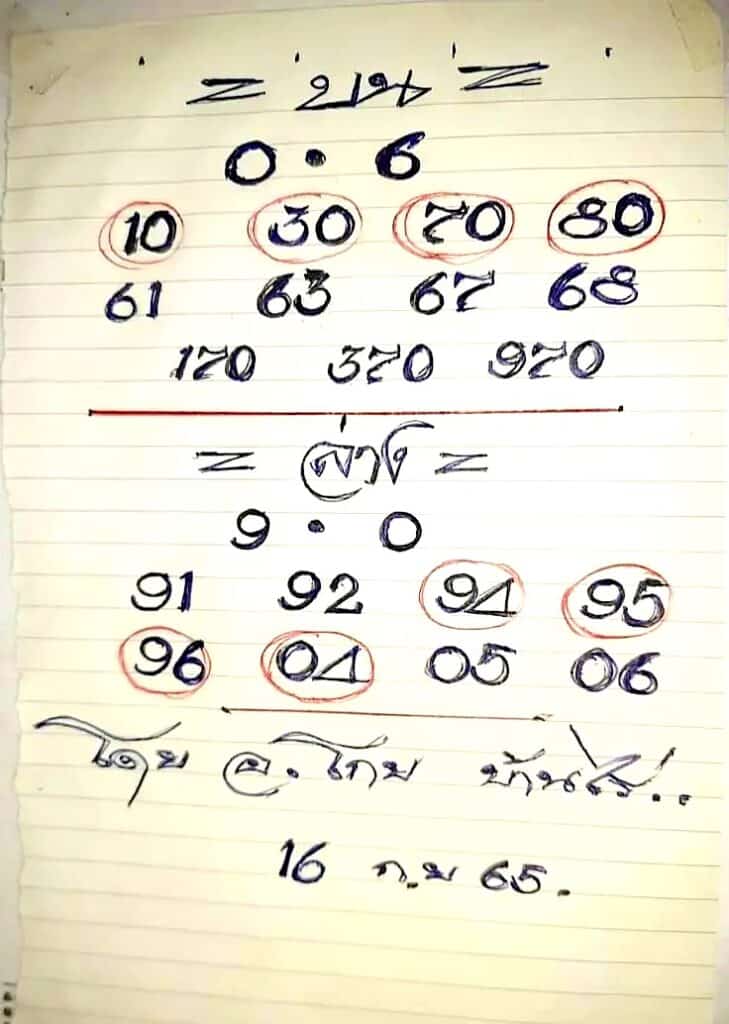 = บน =
0 . 6
10 30 70 80
61 63 67 68
170 370 970
= ล่าง =
9 . 0
91 92 94 95
96 04 05 06
โดย อ. โกย บ้านไร่..
16 ก.พ 65.